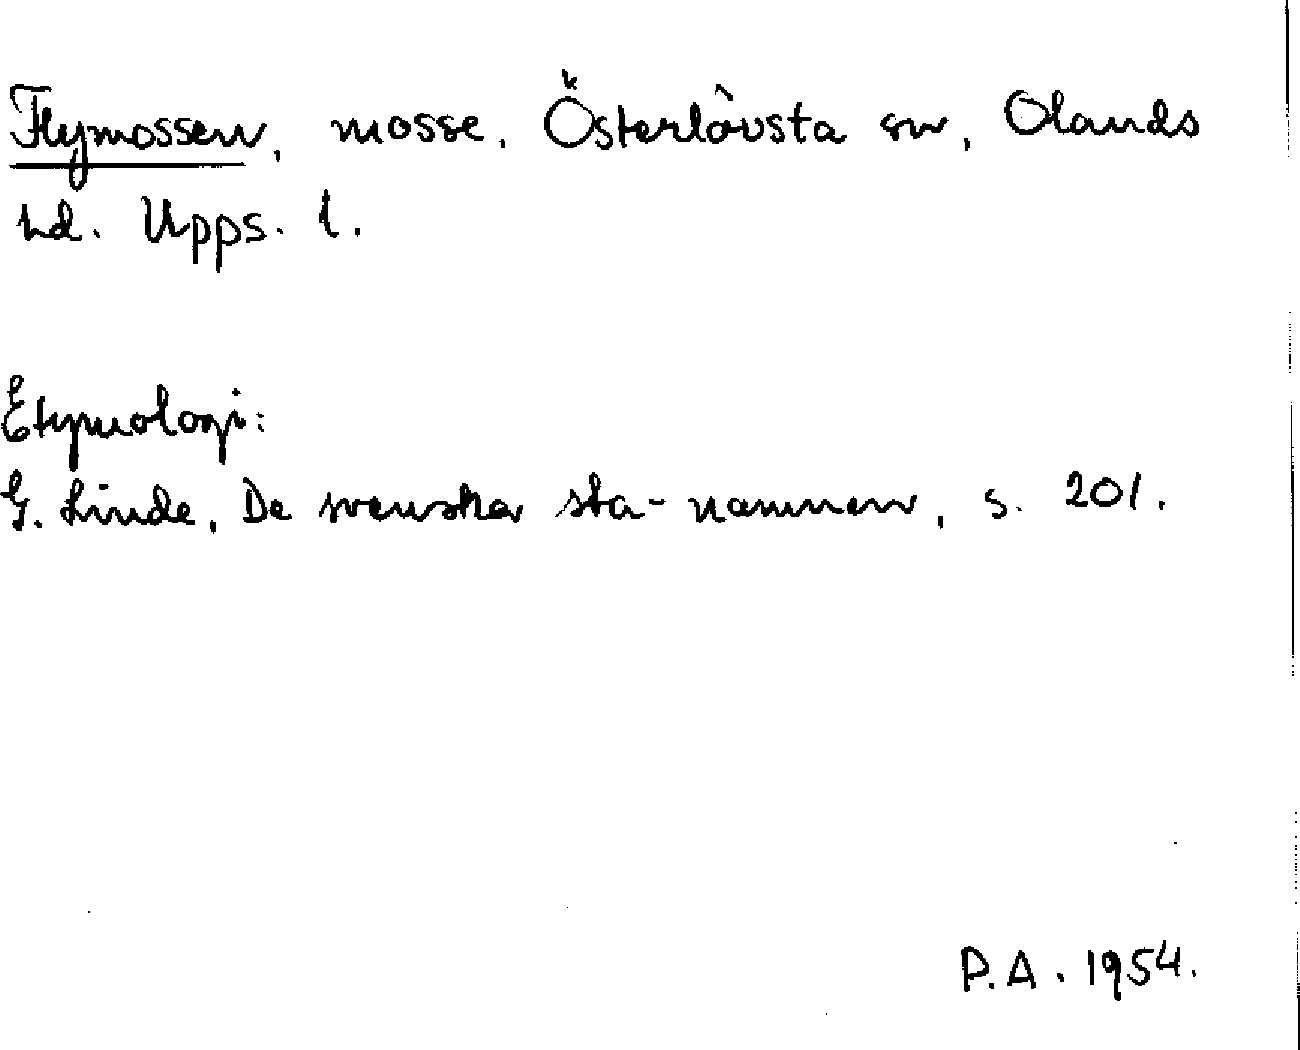 Flymossen, mosse, Österlövsta sn, Olands
hd. Upps. l.
Etymologi:
G. Linde, De svenska sta-namnen, s. 201.
P.A. 1954.